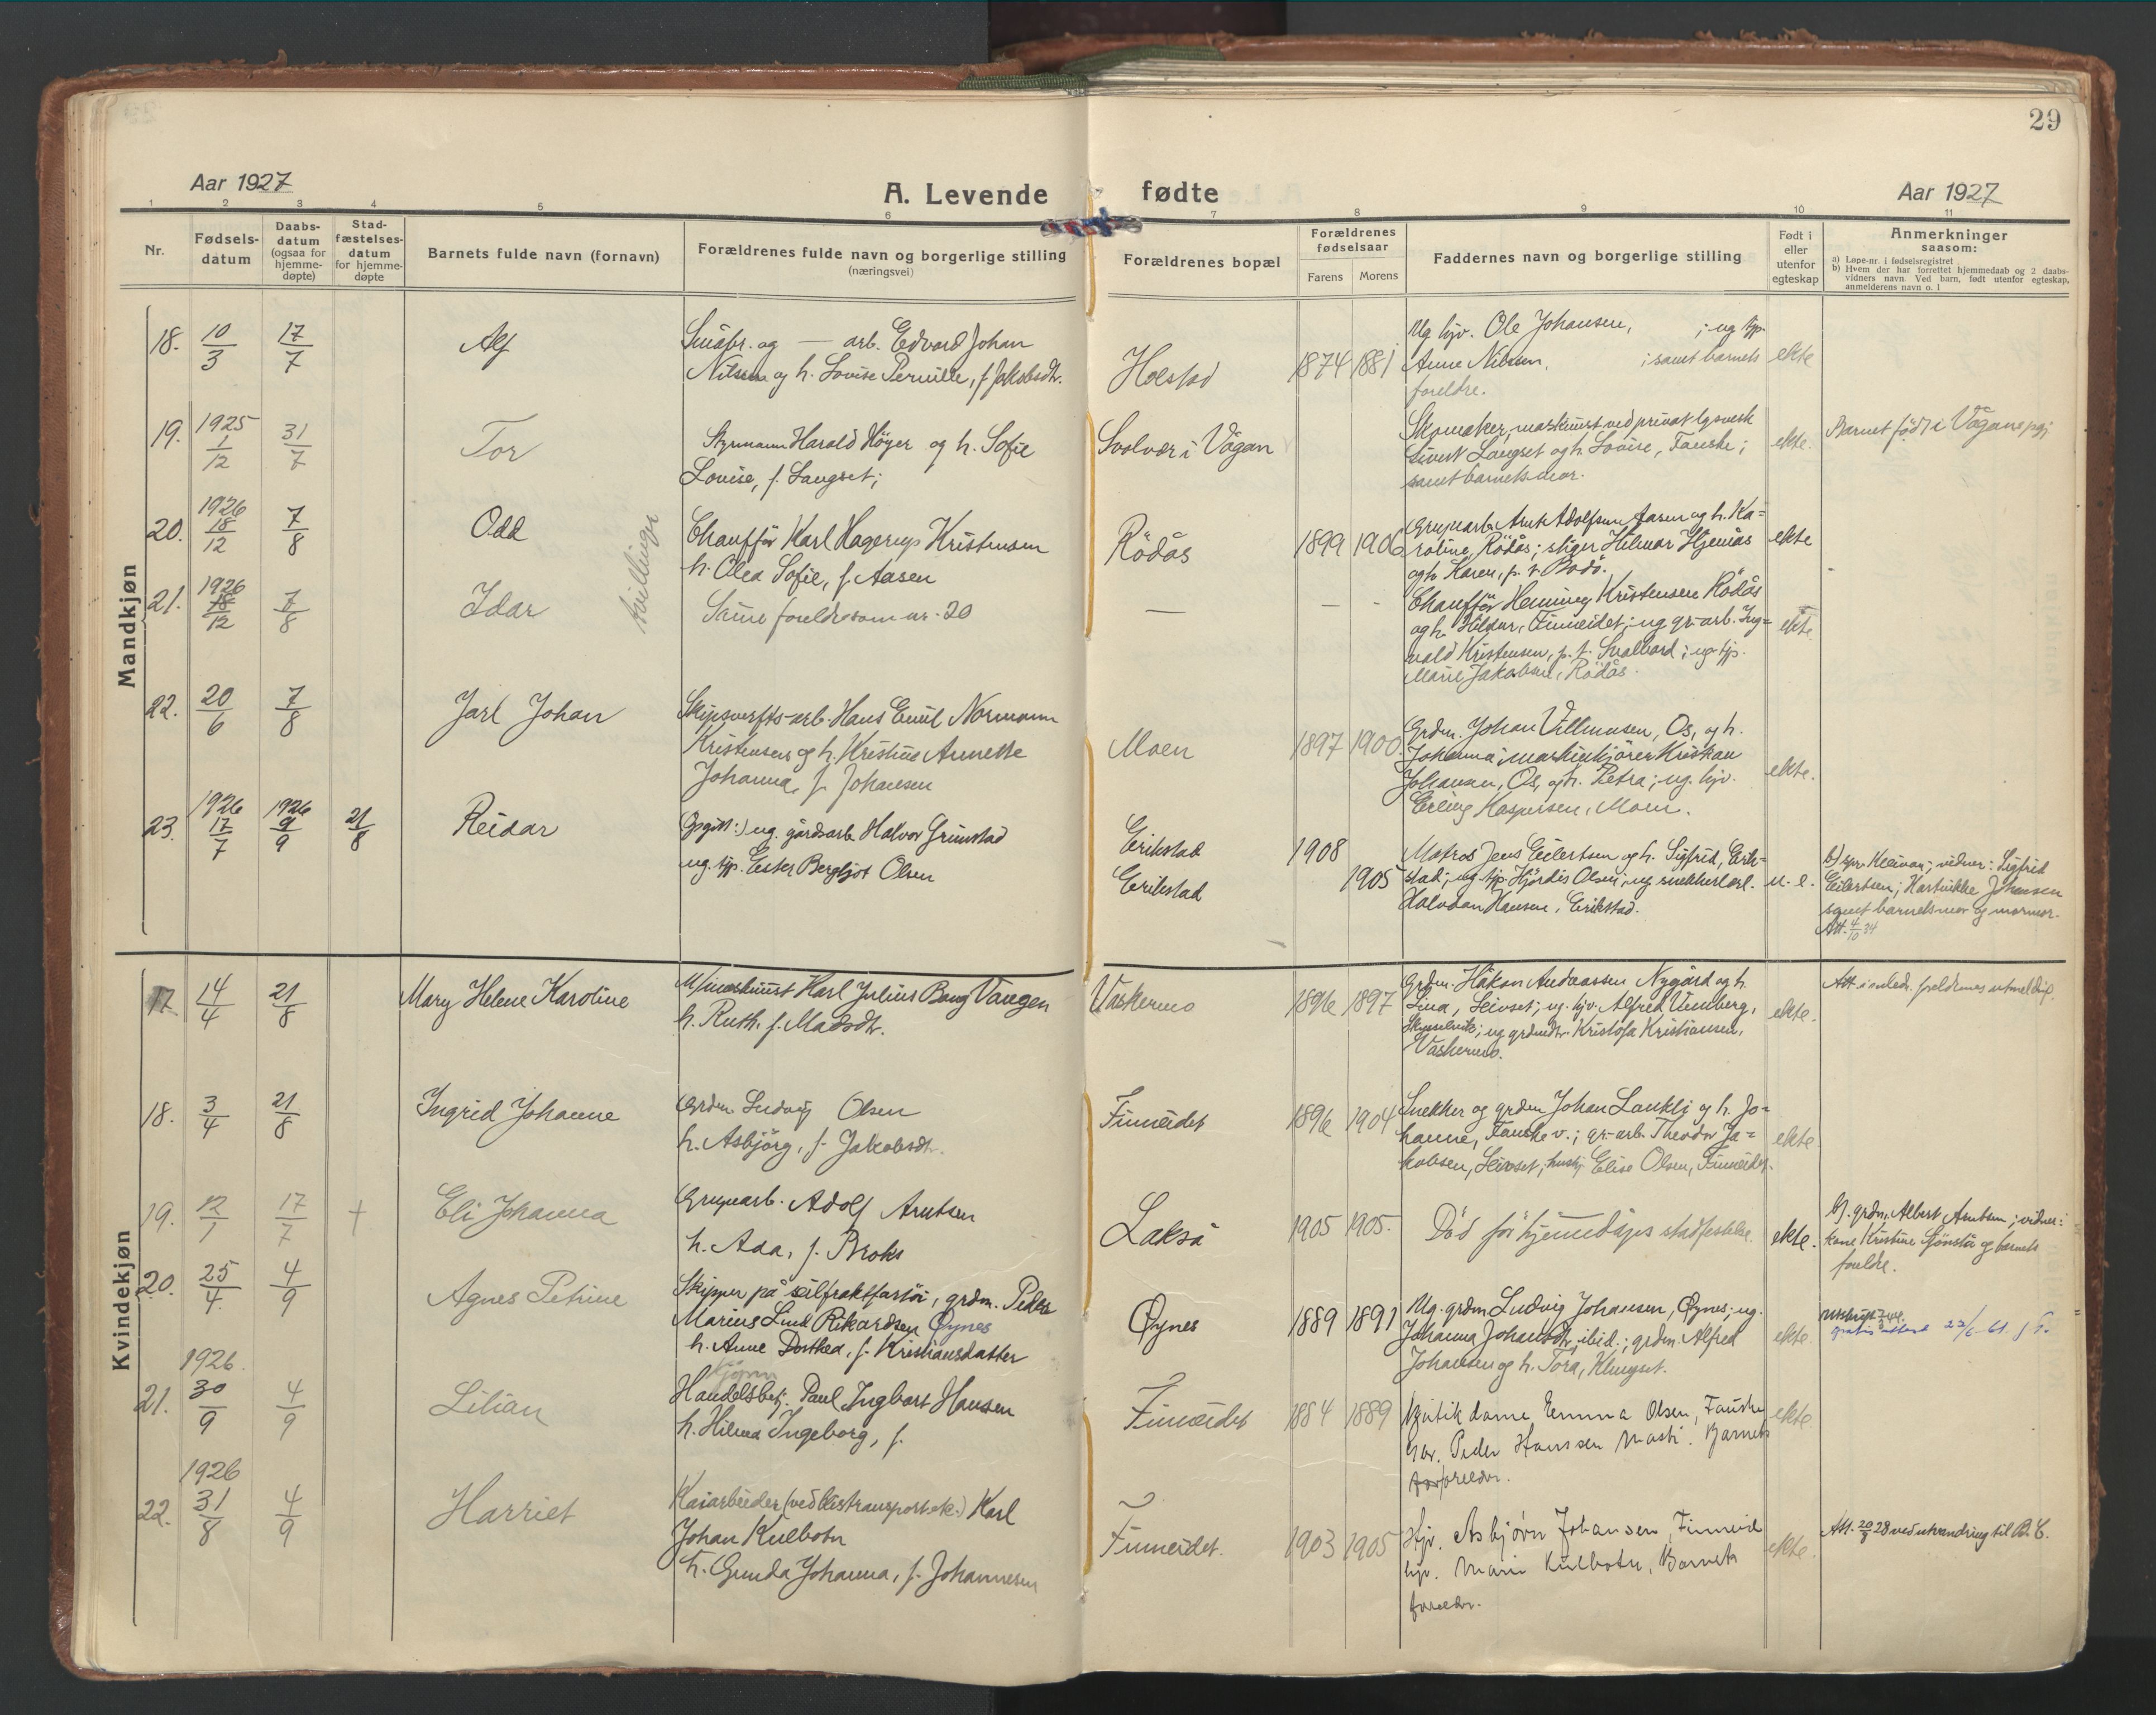 29
Aar 1927
A. Levende fødte
Aar 1927
1 2 3 4 5 6 7 8 9 10 11
Nr.
Fødsels-
datum
Daabs-
datum
(ogsaa for
hjemme-
døpte)
Stad-
fæstelses-
datum
for hjemme-
døpte
Barnets fulde navn (fornavn)
Forældrenes fulde navn og borgerlige stilling
(næringsvei)
Forældrenes bopæl
Forældrenes
fødselsaar
Farens Morens
Faddernes navn og borgerlige stilling
Født i
eller
utenfor
egteskap
Anmerkninger
saasom:
a) Løpe-nr. i fødselsregistret
b) Hvem der har forrettet hjemmedaab og 2 daabs-
vidners navn. Ved barn, født utenfor egteskap,
anmelderens navn o. l
Mandkjøn
18. 10/3 17/7 Alf
Småbr. og — arb. Edvard Johan
Nilsen og h. Lovise Pernille, f. Jakobsdtr.
Holstad 1874 1881
Ug. hjv. Ole Johansen, ; ug. tjp.
Anne Nilsen, ; samt barnets
foreldre.
ekte
19. 1925 1/12 31/7 Tor
Styrmann Harald Höyer og h. Sofie
Lovise, f. Langset;
Svolvær i Vågan
Skomaker, maskinist ved privat lysverk
Sivert Langset og h. Lovise, Fauske;
samt barnets mor.
ekte.
Barnet född i Vågan pgj.
20. 1926 18/12 7/8 Odd
tvillinger
Chaufför Karl Hagerup Kristensen
h. Olea Sofie, f. Aasen
Rödås 1899 1906
Gruvearb. Arnt Adolfsen Aasen og h. Ka=
roline, Rödås; stiger Hilmar Hjemås
og h. Karen, p. t. Bodö.
ekte
21. 1926 18/12 7/8 Idar
Samme foreldre som nr. 20
— — -
Chaufför Henning Kristensen Rödås
og h. Hildur, Finneidet; ug. gr.-arb. Ing=
vald Kristensen, p. t. Svalbard; ug. tjp.
Marie Jakobsen, Rödås.
ekte.
22. 20/6 7/8 Jarl Johan
Skipsverfts-arb. Hans Emil Normann
Kristensen og h. Kristine Annette
Johanna, f. Johansen
Moen 1897 1900.
Grdm. Johan Villumsen, Os, og h.
Johanna; maskinkjörer Kristian
Johansen, Os, og h. Petra; ug. hjv.
Erling Kaspersen, Moen.
ekte.
23. 1926 17/7 1926 9/9 21/8 Reidar
(Opgitt:) ug. gårdsarb. Halvor Grimstad
ug. tjp. Ester Bergljot Olsen
Erikstad 1908
Erikstad 1905
Matros Jens Eilertsen og h. Sigfrid, Erik-
stad; ug. tjp. Hjördis Olsen; ug. snekkerlærl.
Halvdan Hansen, Erikstad.
u. e.
b) spr. Kleivan; vidner: Sigfrid
Eilertsen; Hartvikke Johansen
samt barnets mor og mormor.
Att. 4/10 34
Kvindekjøn
17. 14/4 21/8 Mary Helene Karoline
M/maskinist Karl Julius Bang Vangen
h. Ruth, f. Madsdtr.
Vaskermo 1896 1897
Grdm. Håkon Andreassen Nygård og h.
Lina, Leivset; ug. hjv. Alfred
ug. grdmdtr. Kristofa Kristiansen,
Vaskermo.
ekte.
Att. i anledn. foreldrenes utmeldig.
18. 3/4 21/8 Ingrid Johanne
Grdm. Ludvig Olsen
h. Asbjörg, f. Jakobsdtr.
Finneidet 1896 1904
Snekker og grdm. Johan Lanklj og h. Jo=
hanne, Fauske v.; gr.-arb. Theodor Ja=
kobsen, Leivset; hustj. Elise Olsen, Finneidet.
ekte.
19. 12/1 17/7 † Eli Johanna
Gruvearb. Adolf Arntsen
h. Ada, f. Broks
Lakså 1905 1905.
Död för hjemmedåpens stadfestelse.
ekte.
b). grdm. Albert Arntsen; vidner:
kone Kristine Sjönstå og barnets
foreldre.
20. 25/4 4/9 Agnes Petrine
Skipper på seilfraktfartöi, grdm. Peder
Marius Lund Rikardsen Øynes
h. Anne Dorthea, f. Kristiansdatter
Øynes 1889 1891
Ug. grdm Ludvig Johansen, Øynes; ug.
Johanna Johansdtr. ibid.; grdm. Alfred
Johansen og h. Tora, Klungset.
ekte.
gratis attest 22/6-61.
21. 1926. 30/9 4/9 Lilian
Handelsbetj. Paul Ingbart Hansen
h. Hilma Ingeborg, f.
Finneidet 1884 1889
Butikdame Emma Olsen, Fauske
Gbr. Peder Hanssen Mosti. Barnets
foreldre.
ekte
22. 1926 31/8 4/9 Harriet
Kaiarbeider (ved kistransport etc.) Karl
Johan Kulbotn
h. Gunda Johanna, f. Johannesen
Finneidet. 1903 1905
Hjv. Asbjørn Johansen, Finneid
hjv. Marie Kulbotn, Barnets
foreldr.
ekte.
Att. 20/8 28 ved utvandring til B. C.